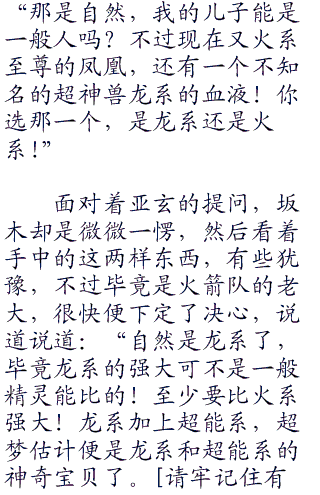 “那是自然，我的儿子能是
一般人吗？不过现在又火系
至尊的凤凰，还有一个不知
名的超神兽龙系的血液！你
选那一个，是龙系还是火
系！”
面对着亚玄的提问，坂
木却是微微一愣，然后看着
手中的这两样东西，有些犹
豫，不过毕竟是火箭队的老
大，很快便下定了决心，说
道说道：“自然是龙系了，
毕竟龙系的强大可不是一般
精灵能比的！至少要比火系
强大！龙系加上超能系，超
梦估计便是龙系和超能系的
神奇宝贝了。[请牢记住有